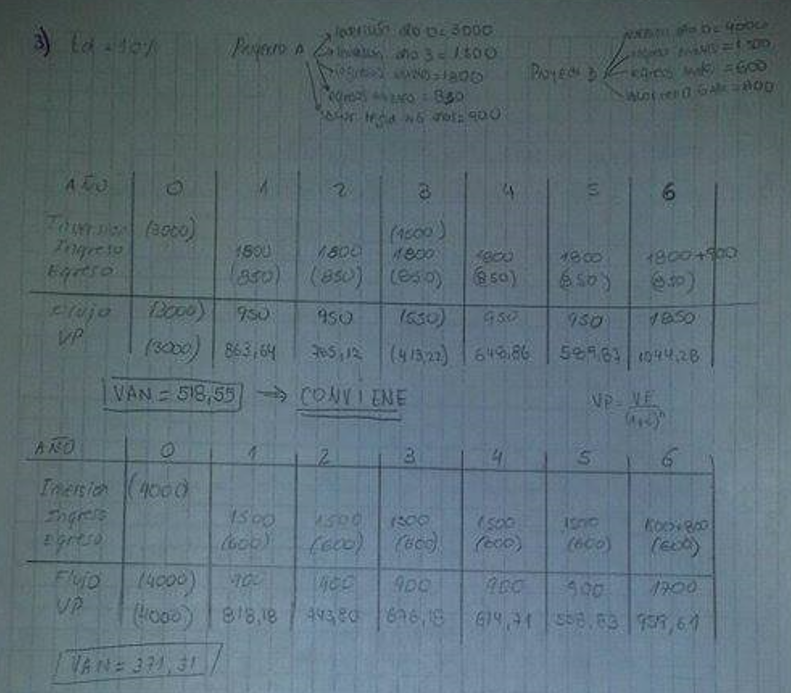 3) td = 10%
Proyecto A
Inversión año 0 = 3000
Inversión año 3 = 1500
ingresos anuales = 1800
egresos anuales = 850
valor resid 6 años = 900
Proyecto B
Inversión año 0 = 4000
= 1500
egresos = 600
= 800
AÑO 0 1 2 3 4 5 6
Inversion (3000) (1500)
Ingreso 1800 1800 1800 1800 1800 1800+900
Egreso (850) (850) (850) (850) (850) (850)
Flujo (3000) 950 950 (550) 950 950 1850
VP (3000) 863,64 785,12 (413,22) 648,86 589,87 1044,28
VAN = 518,55 → CONVIENE
VP = VF/(1+i)^n
AÑO 0 1 2 3 4 5 6
Inversion (4000)
Ingreso 1500 1500 1500 1500 1500 1500+800
Egreso (600) (600) (600) (600) (600) (600)
Flujo (4000) 900 900 900 900 900 1700
VP (4000) 818,18 743,80 676,18 614,71 558,83 959,61
VAN = 371,31